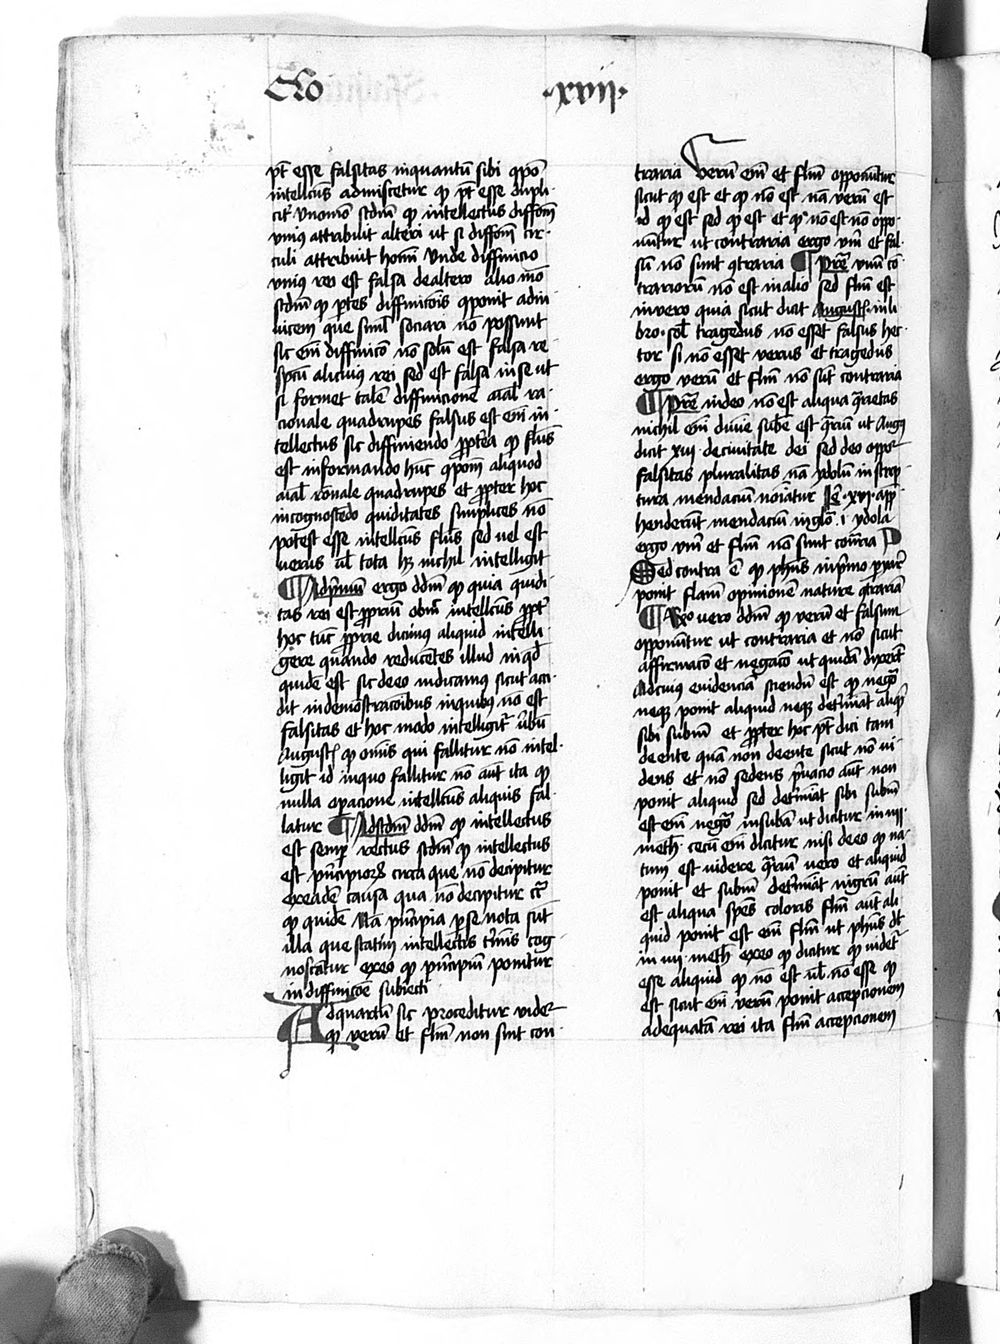 Qo
·xvij·
pt̄ esse falsitas inquantū sibi ɋpō
intellcūs admiscetur ꝙ pt̄ esse dupli
citr̄ Vnomō scdm̄ ꝙ intellectus diffōm
vnius attribuit alteri ut si diffōm cir-
culi attribuit homī Vnde diffinicio
vnius rei est falsa de altero alio mō
scdm̄ ꝙ ptes diffinicōis ɋponit adin
uicem que siml̄ sociari nō possunt
sic em̄ diffinicō nō solū est falsa re
spcū alicuius rei sed est falsa in se ut
si formet talē diffinicionē aīal ra-
cionale quadrupes falsus est em̄ in-
tellectus sic diffiniendo ꝓpterea ꝙ fls̄us
est in formando hūc ɋpom̄ aliquod
aīal rōnale quadrupes et ꝓpter hoc
in cognoscēdo quiditates simplices nō
potest esse intellcūs fls̄us sed uel est
uerus ul̄ tota lr̄ nichil intelligit
¶ Ad pimū ergo ddm̄ ꝙ quia quidi-
tas rei est ꝓprium obm̄ intellcūs ꝓpt̄
hoc tūc ꝓprie dicimus aliquid intelli
gere quando reducētes illud in qd
quid est sic de eo iudicamus sicut acci-
dit in demōstracōibus in quibus nō est
falsitas et hoc modo intelligitr̄ ūbū
Augustī ꝙ omnis qui fallitur nō intel-
ligit id in quo fallitur nō aut̄ ita ꝙ
nulla operacione intellcūs aliquis fal-
latur ¶ Ad scdm̄ ddm̄ ꝙ intellectus
est semp̄ rectus scdm̄ ꝙ intellectus
est pn̄cipiorū circa que nō decipitur
ex eadē causa qua nō decipitur cir̄
ꝙ quid est Nā pn̄cipia p se nota sūt
illa que statim intellectis tm̄is cog-
noscātur ex eo ꝙ pn̄cipiū ponitur
in diffinicōe subiecti
Ad quartū sic proceditur videtr̄
ꝙ verū et flm̄ non sint con-
traria Verū em̄ et flm̄ opponūtur
sicut ꝙ est et ꝙ nō est nā verū est
id ꝙ est sed ꝙ est et ꝙ nō est nō oppo-
nūtur ut contraria ergo vm̄ et fal-
sū nō sunt ɋtraria ¶ Pret̄ vnū cō
trariorū nō est in alio sed flm̄ est
in vero quia sicut dicit Augustī in li
bro sol̄ tragedus nō esset falsus hec-
tor si nō esset verus et tragedus
ergo verū et flm̄ nō sūt contraria
¶ Pret̄ in deo nō est aliqua ɋrietas
nichil em̄ diuie sube est ɋriū ut Augꝰ
dicit xii de ciuitate dei sed deo oppoītr̄
falsitas pluralitas nā ydolū in scrip-
tura mendaciū noīatur Ie· xvi· app̄
henderūt mendaciū in glo· i ydola
ergo vm̄ et flm̄ nō sunt contria
Sed contra ē ꝙ phus in primo
ponit flam̄ opinionē uere ɋtrariā
¶ Rño vero ddm̄ ꝙ verū et falsum
opponūtur ut contraria et nō sicut
affirmacō et negacō ut quidā dixert̄
Ad cuius euidenciā sciendū est ꝙ nego
neqꝫ ponit aliquid neqꝫ det̄minat aliqd
sibi subm̄ et ꝓpter hoc pt̄ dici tam
de ente quā non de ente sicut nō vi-
dens et nō sedens puacio aut̄ non
ponit aliquid sed det̄miāt sibi subm̄
est em̄ nego in subā ut dicitur in iiij·
meth· cecū em̄ dicitur nisi de eo ꝙ na-
tum est videre ɋriū vero et aliquid
ponit et subm̄ det̄miāt nigrū aut̄
est aliqua spēs coloris flm̄ aut̄ ali
quid ponit est em̄ flm̄ ut phus dt̄
in iiij meth· ex eo ꝙ dicitur ꝙ videtr̄
esse aliquid ꝙ nō est ul̄ nō esse ꝙ
est sicut em̄ verū ponit accepcionem
adequatā rei ita flm̄ accepcionem